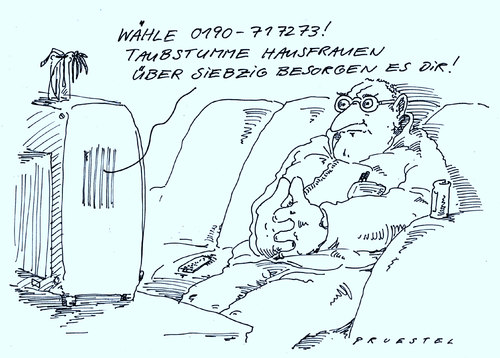 WÄHLE 0190-717273!
TAUBSTUMME HAUSFRAUEN
ÜBER SIEBZIG BESORGEN ES DIR!
PRUESTEL